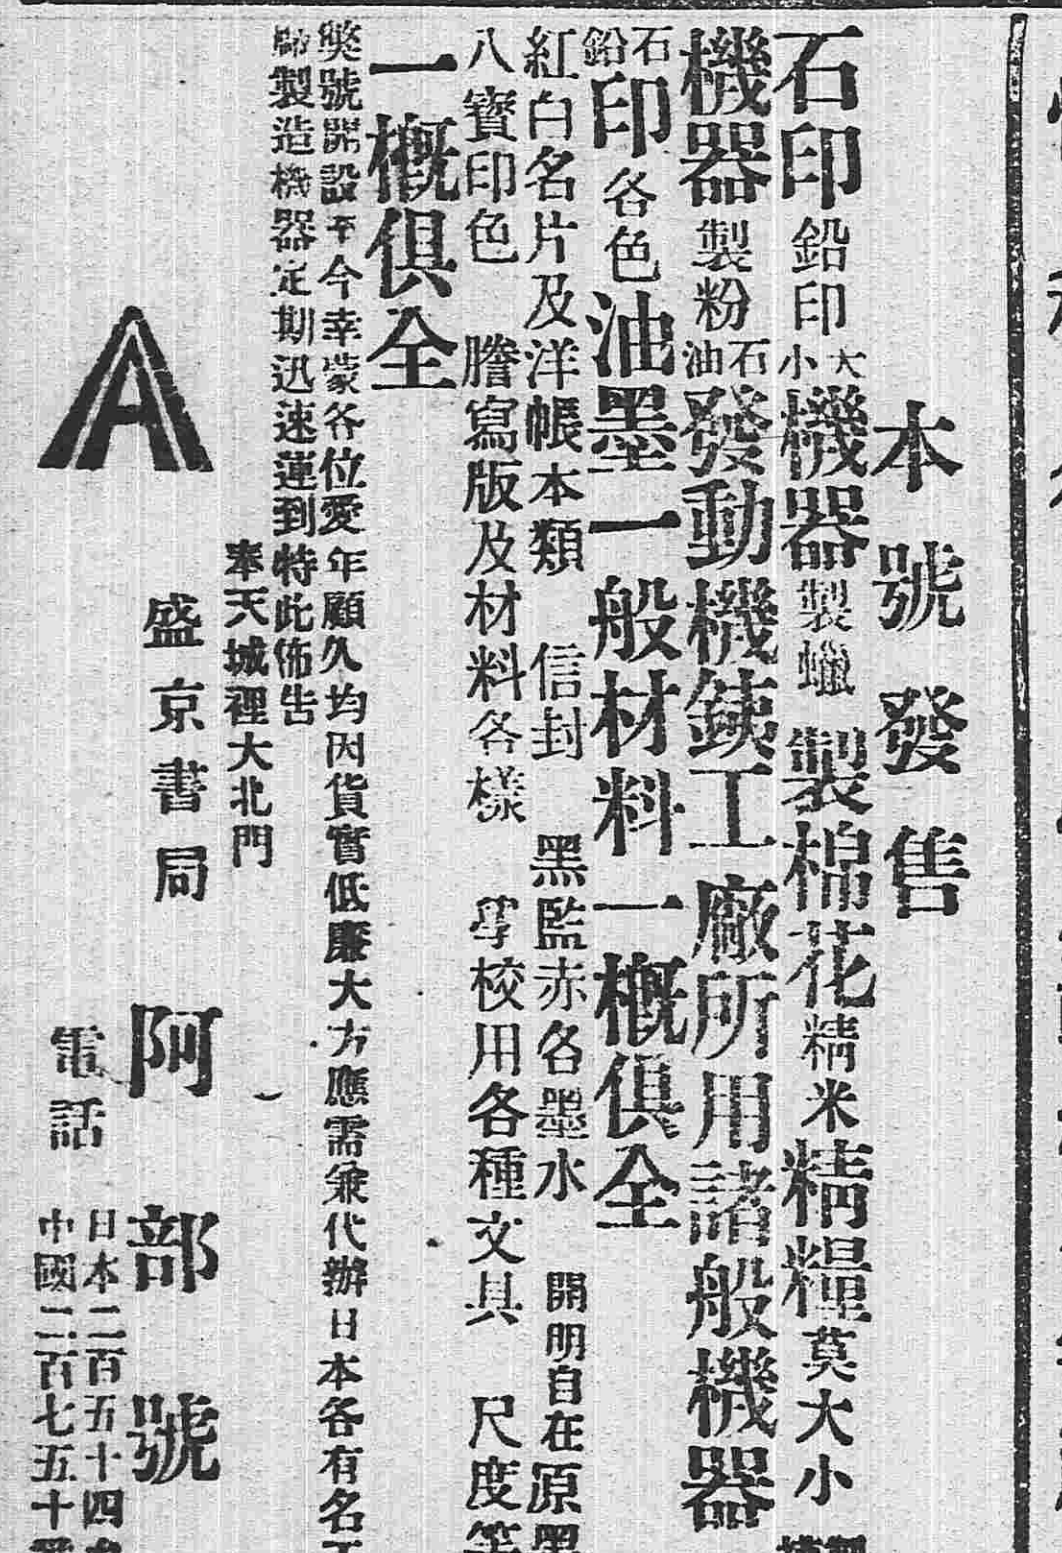 本號發售
石印鉛印大小機器製蠟製棉花精米精糧莫大小
機器製粉石油發動機鉄工廠所用諸般機器
石鉛印各色油墨一般材料一概俱全
紅白名片及洋帳本類 信封 黑監赤各墨水 開明自在原墨
八寶印色 謄寫版及材料各樣 學校用各種文具 尺度等
一概俱全
獘號開設至今幸蒙各位愛年顧久均因貨實低廉大方應需兼代辦日本各有名工
廠製造機器定期迅速運到特此佈告
奉天城裡大北門
盛京書局 阿部號
電話
日本二百五十四
中國二百七五十